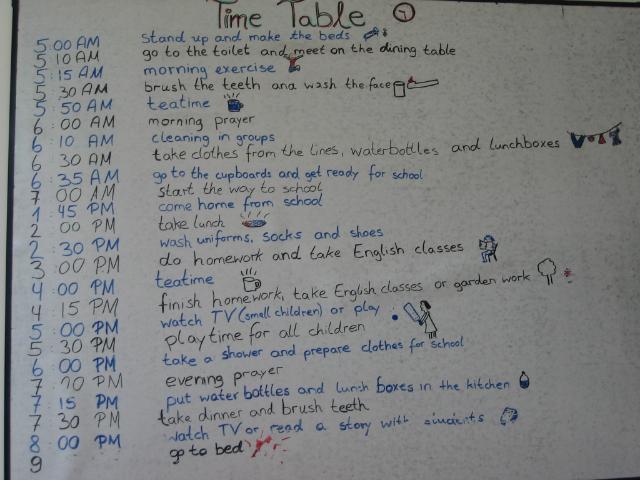 Time Table
5:00 AM stand up and make the beds
5 10 AM go to the toilet and meet on the dining table
5:15 AM morning exercise
5 30 AM brush the teeth and wash the face
5:50 AM teatime
6:00 AM morning prayer
6:10 AM cleaning in groups
6 30 AM take clothes from the lines, waterbottles and lunchboxes
6:35 AM go to the cupboards and get ready for school
7 00 AM start the way to school
1:45 PM come home from school
2 00 PM take lunch
2:30 PM wash uniforms, socks and shoes
3:00 PM do homework and take English classes
4:00 PM teatime
4:15 PM finish homework, take English classes or garden work
5:00 PM watch TV (small children) or play
5:30 PM playtime for all children
6:00 PM take a shower and prepare clothes for school
7 PM evening prayer
7:15 PM put water bottles and lunch boxes in the kitchen
7:30 PM take dinner and brush teeth
8:00 PM watch TV or read a story with
9 go to bed